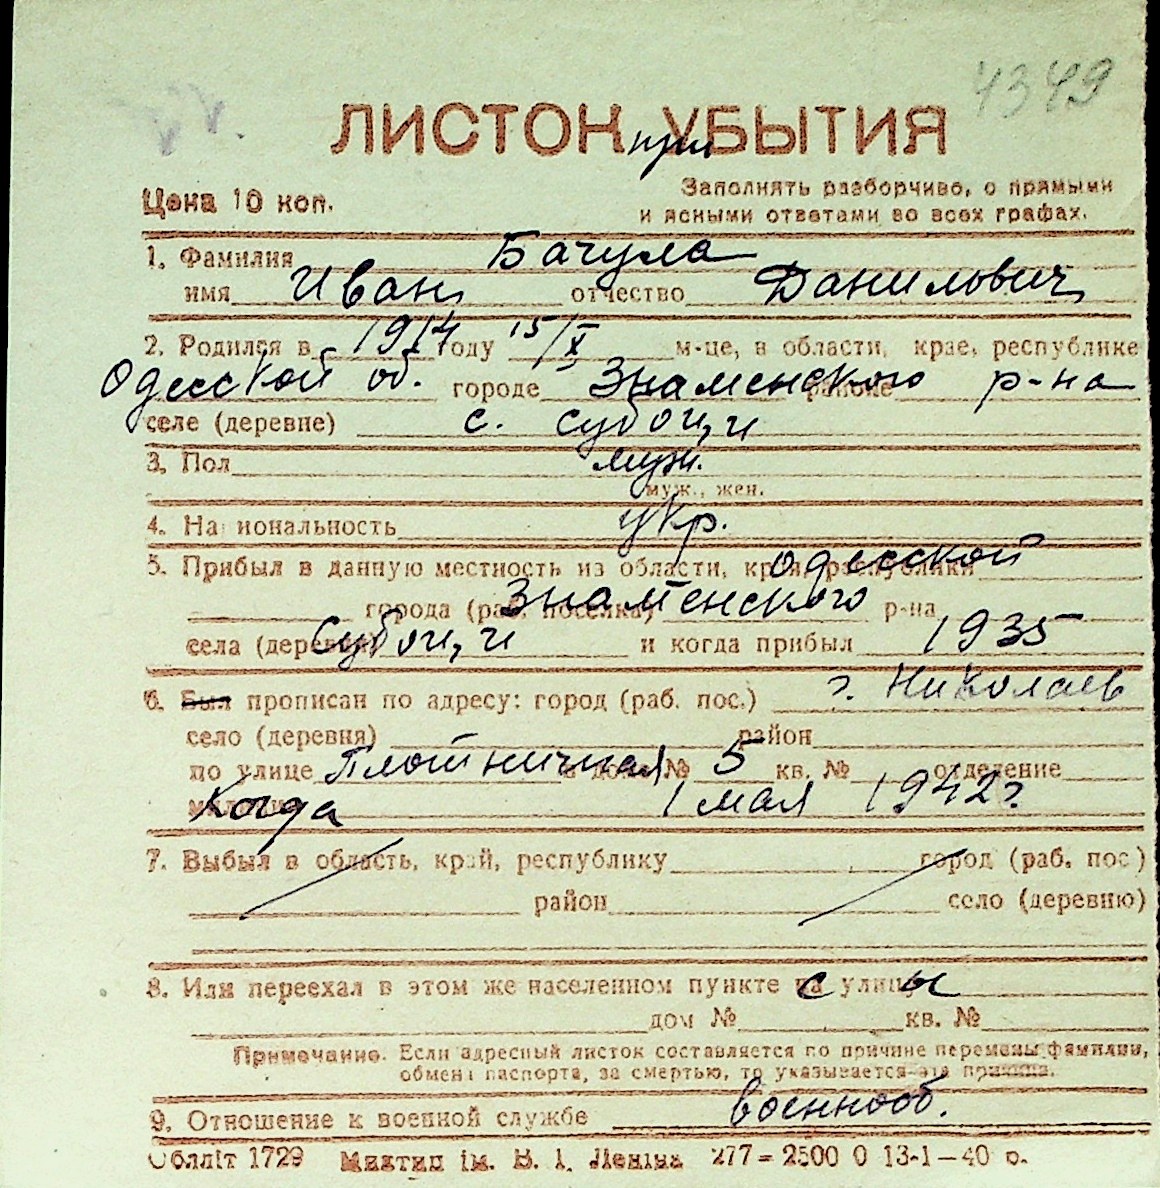 4349
ЛИСТОК УБЫТИЯ
при
Цена 10 коп.
Заполнять разборчиво, с прямыми
и ясными ответами во всех графах.
1. Фамилия Бачула
имя Иван отчество Данилович
2. Родился в 1914 году 15/X м-це, в области, крае, республике
Одесской об. городе Знаменского районе р-на
селе (деревне) с. Субоци
3. Пол муж.
муж., жен.
4. Национальность укр.
5. Прибыл в данную местность из области, края, республики Одесской
города (раб. поселка) Знаменского р-на
села (деревни) Субоци и когда прибыл 1935
6. Был прописан по адресу: город (раб. пос.) г. Николаев
село (деревня) район
по улице Плотничная в доме № 5 кв. № отделение
милиции Когда 1 мая 1942 г.
7. Выбыл в область, край, республику город (раб. пос.)
район село (деревню)
8. Или переехал в этом же населенном пункте на с улицу ы
дом № кв. №
Примечание. Если адресный листок составляется по причине перемены фамилии,
обмена паспорта, за смертью, то указывается эта причина.
9. Отношение к военной службе военнооб.
Обллiт 1729 Миктип iм. В. I. Ленiна 277 = 2500 0 13-1-40 р.